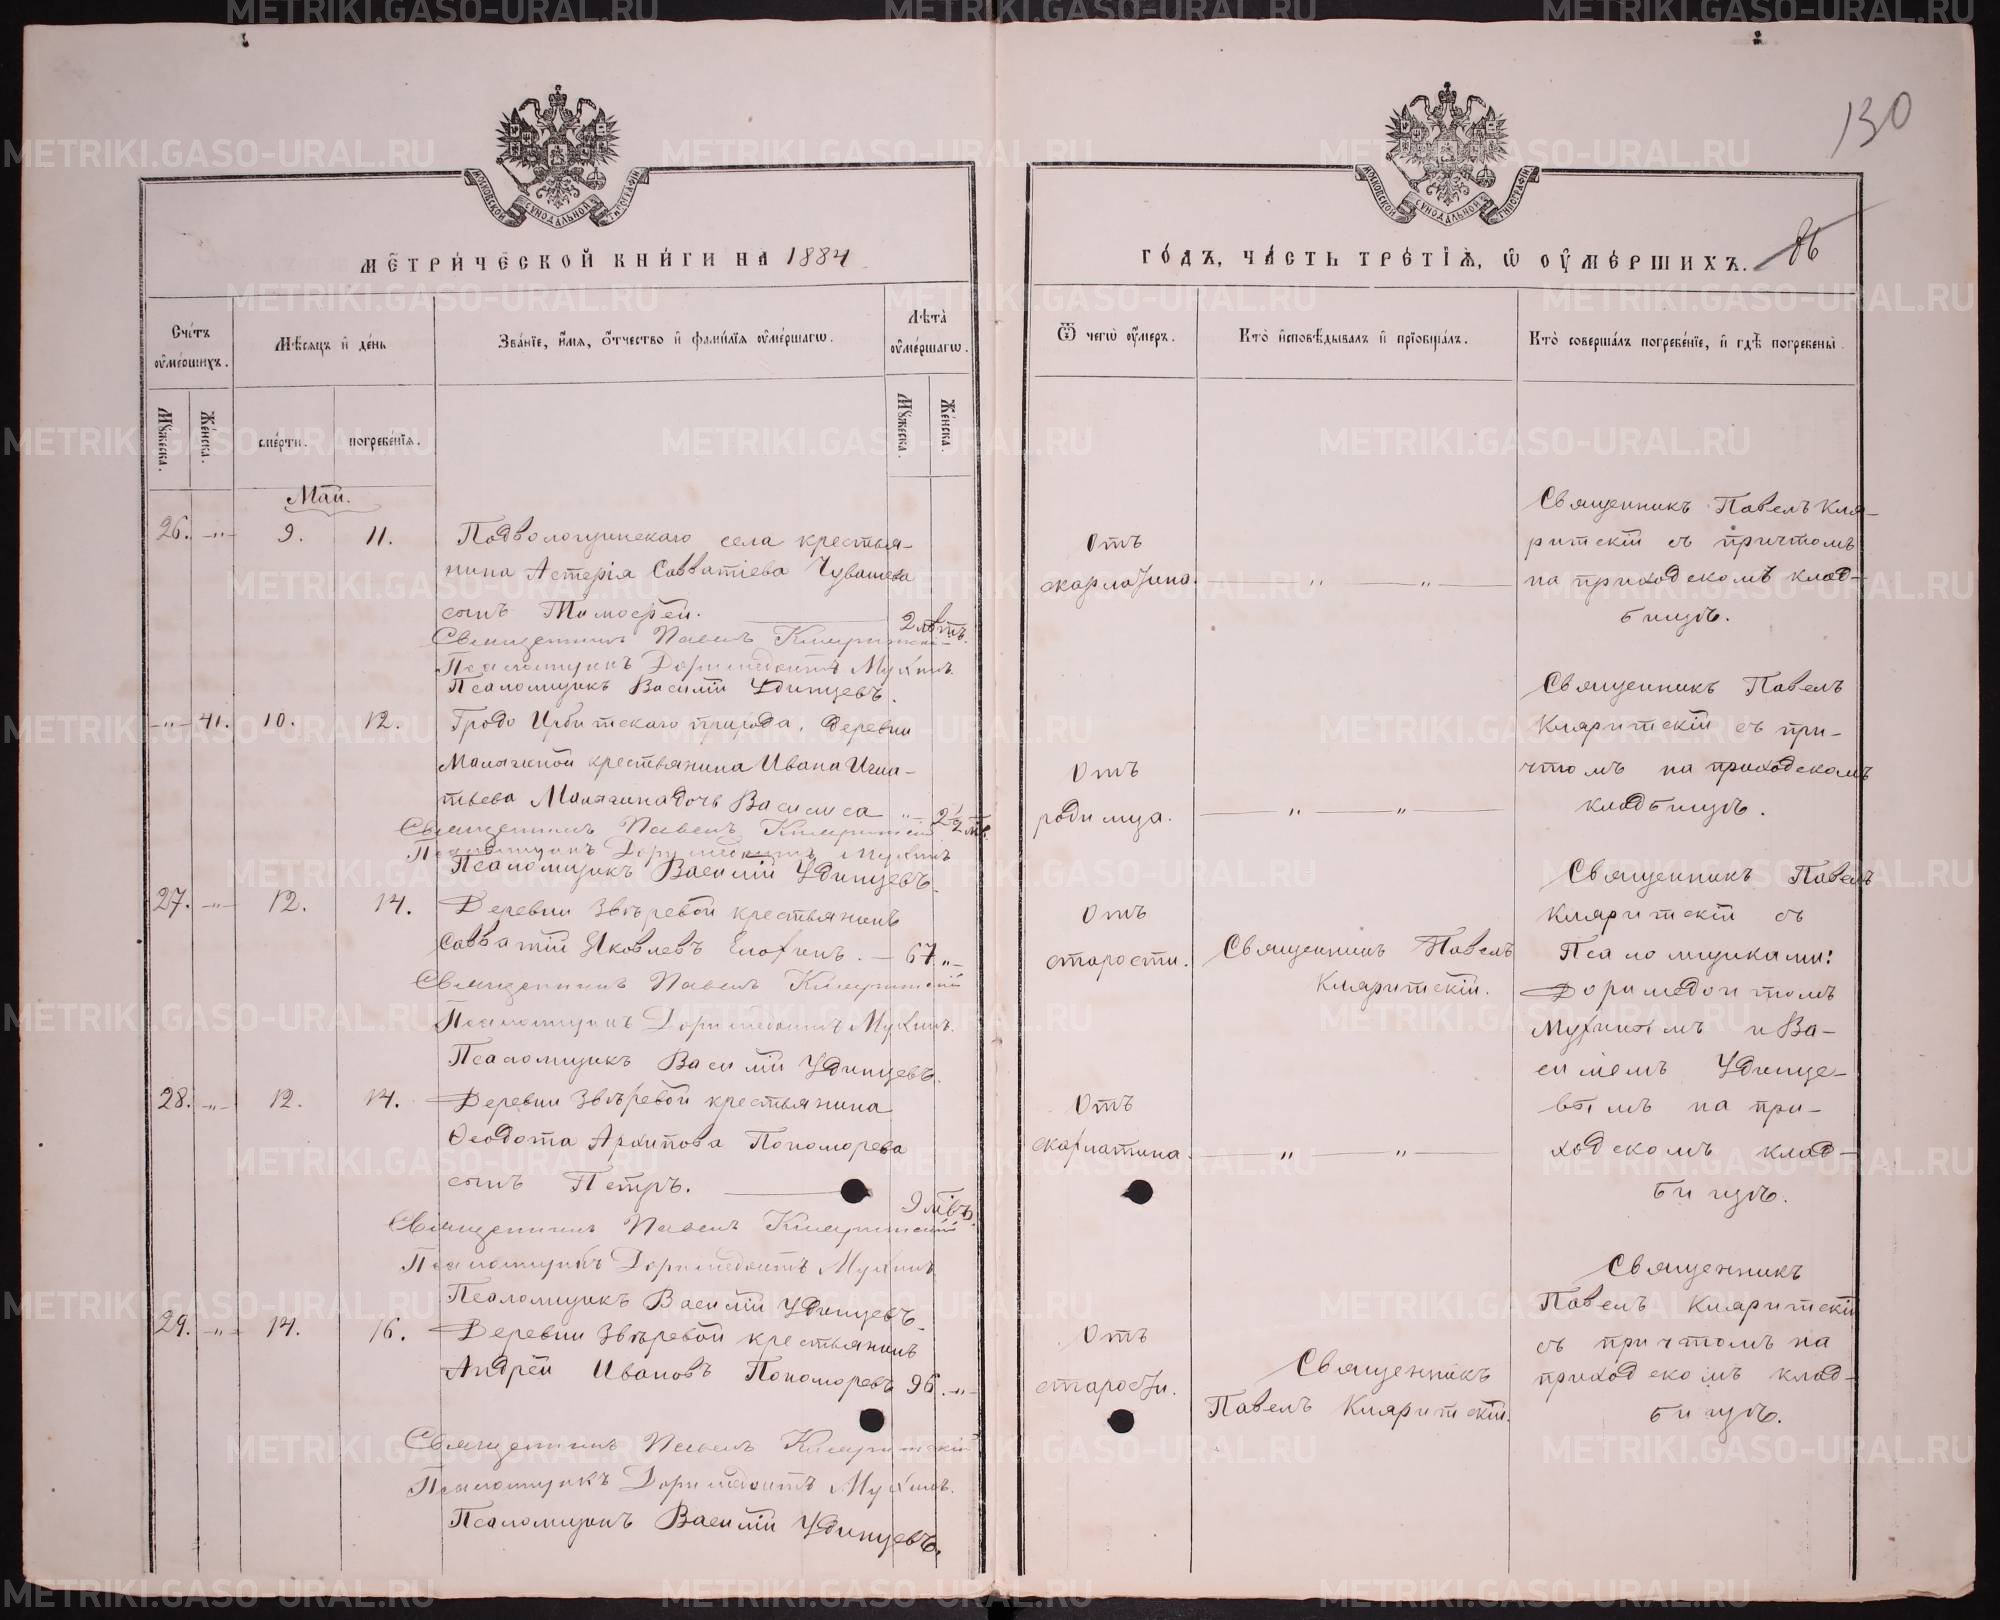 130
МОСКОВСКОЙ СѴНОДАЛЬНОЙ ТИПОГРАФІИ
МОСКОВСКОЙ СѴНОДАЛЬНОЙ ТИПОГРАФІИ
МЕТРИЧЕСКОЙ КНИГИ НА 1884
ГОДЪ, ЧАСТЬ ТРЕТІѦ, Ѡ ОУМЕРШИХЪ. 86
Счетъ оумершихъ.
Мѣсяцъ и день
Званіе, имя, отчество и фамилія оумершагѡ.
Лѣта оумершагѡ.
Ѿ чегѡ оумеръ.
Кто исповѣдывалъ и пріобщалъ.
Кто совершалъ погребеніе, и гдѣ погребены.
Мꙋжеска.
Женска.
смерти.
погребенія.
Мꙋжеска.
Женска.
Май.
26. -„- 9. 11.
Подволошинскаго села крестья-
нина Астерія Савватіева Чувашева
сынъ Тимофей. 2 лѣтъ.
Священникъ Павелъ Кляритскій
Псаломщикъ Доримедонтъ Мухинъ.
Псаломщикъ Василій Удинцевъ.
Отъ
скарлатина. „ „
Священникъ Павелъ Кля-
ритскій съ причтомъ
на приходскомъ клад-
бищѣ.
-„- 41. 10. 12.
Градо Ирбитскаго прихода, деревни
крестьянина Ивана Игна-
тьева дочь Василиса „ 2 1/2 мѣс.
Священникъ Павелъ Кляритскій
Псаломщикъ Доримедонтъ Мухинъ
Псаломщикъ Василій Удинцевъ.
Отъ
родимца. „ „
Священникъ Павелъ
Кляритскій съ при-
чтомъ на приходскомъ
кладбищѣ.
27. -„- 12. 14.
Деревни Звѣревой крестьянинъ
Савватій Яковлевъ Елохинъ. — 67. „-
Священникъ Павелъ Кляритскій
Псаломщикъ Доримедонтъ Мухинъ.
Псаломщикъ Василій Удинцевъ.
Отъ
старости.
Священникъ Павелъ
Кляритскій.
Священникъ Павелъ
Кляритскій съ
Псаломщиками:
Доримедонтомъ
Мухинымъ и Ва-
силіемъ Удинце-
вымъ на при-
ходскомъ клад-
бищѣ.
28. -„- 12. 14.
Деревни Звѣревой крестьянина
Ѳеодота Архипова Пономорева
сынъ Петръ. 9 мѣс.
Священникъ Павелъ Кляритскій
Псаломщикъ Доримедонтъ Мухинъ
Псаломщикъ Василій Удинцевъ.
Отъ
скарлатина. „ „
29. -„- 14. 16.
Деревни Звѣревой крестьянинъ
Андрей Ивановъ Пономоревъ 96. -„-
Священникъ Павелъ Кляритскій
Псаломщикъ Доримедонтъ Мухинъ.
Псаломщикъ Василій Удинцевъ.
Отъ
старости.
Священникъ
Павелъ Кляритскій.
Священникъ
Павелъ Кляритскій
съ причтомъ на
приходскомъ клад-
бищѣ.
METRIKI.GASO-URAL.RU